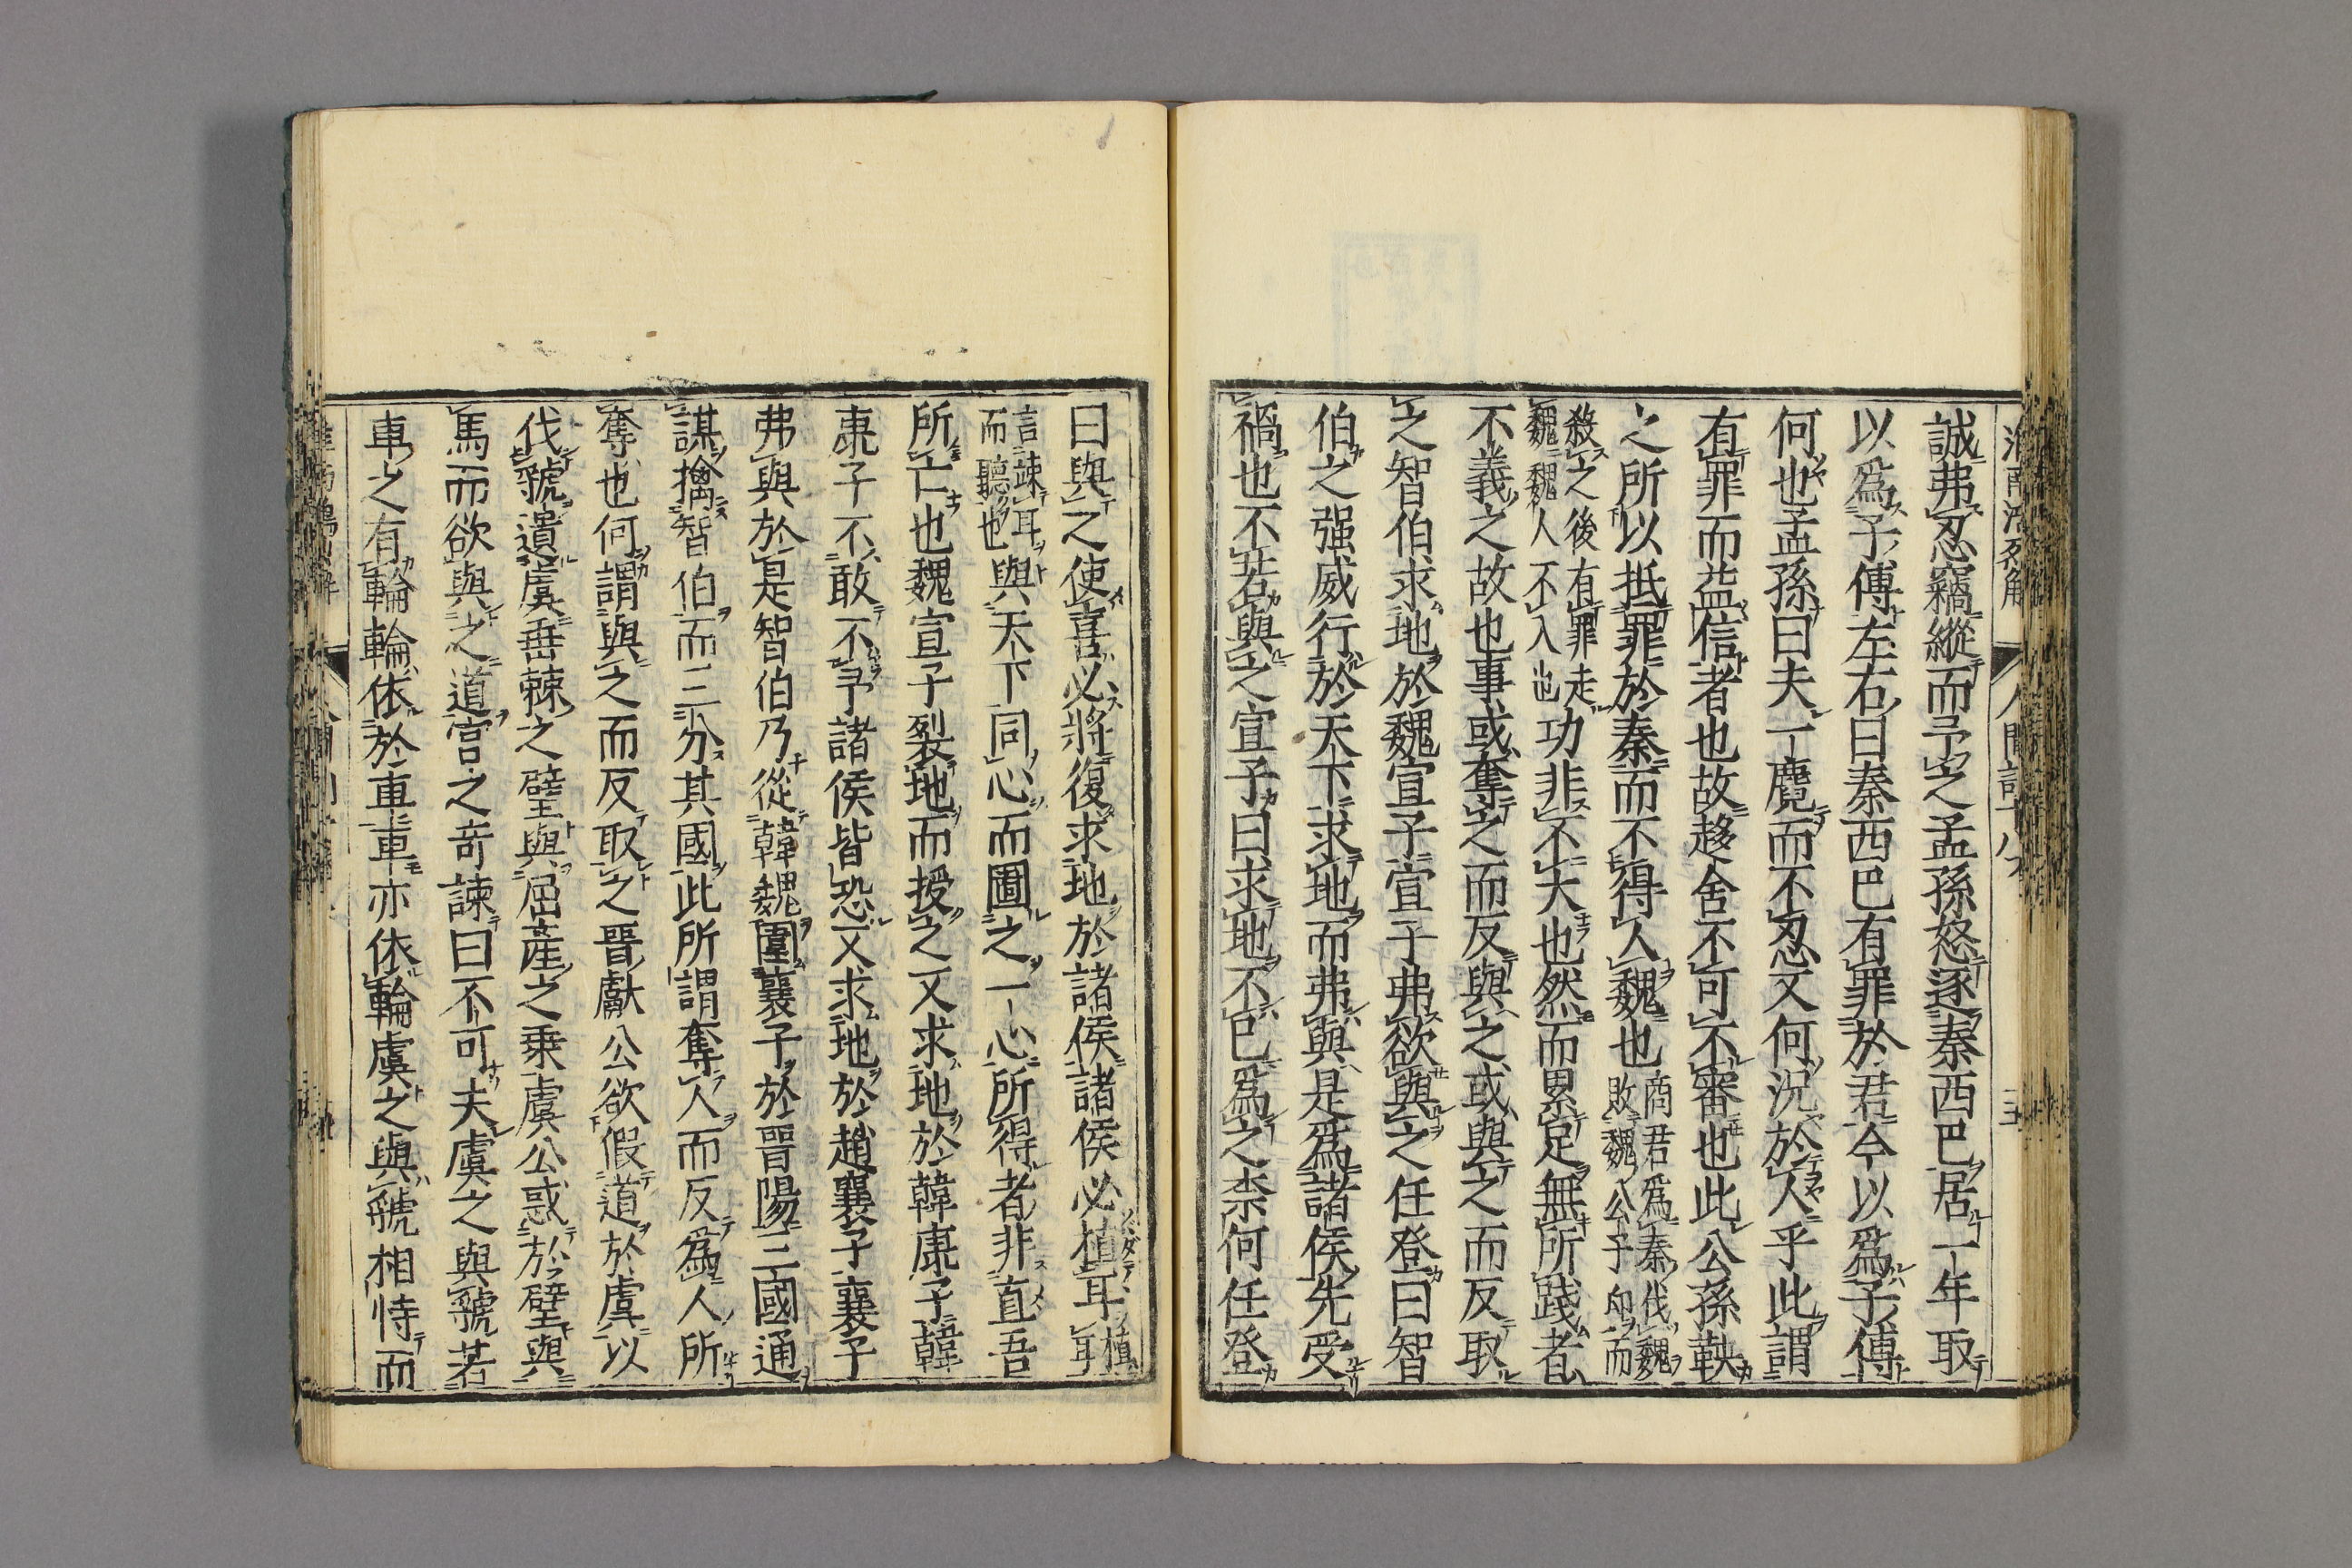 誠弗忍竊縱而予之孟孫怒逐秦西巴居一年取
以爲子傅左右曰秦西巴有罪於君今以爲子傅
何也孟孫曰夫一麑而不忍又何況於人乎此謂
有罪而益信者也故趍舍不可不審也此公孫鞅
之所以抵罪於秦而不得入魏也商君爲秦伐魏
敗魏公子卬而
殺之後有罪走
魏魏人不入也功非不大也然而累足無所踐者
不義之故也事或奪之而反與之或與之而反取
之智伯求地於魏宣子宣子弗欲與之任登曰智
伯之强威行於天下求地而弗與是爲諸侯先受
禍也不若與之宣子曰求地不已爲之柰何任登
曰與之使喜必將復求地於諸侯諸侯必植耳植
耳
言竦耳
而聽也與天下同心而圖之一心所得者非直吾
所亡也魏宣子裂地而授之又求地於韓康子韓
康子不敢不予諸侯皆恐又求地於趙襄子襄子
弗與於是智伯乃從韓魏圍襄子於晉陽三國通
謀擒智伯而三分其國此所謂奪人而反爲人所
奪也何謂與之而反取之晉獻公欲假道於虞以
伐虢遺虞垂棘之璧與屈產之乗虞公惑於璧與
馬而欲與之道宮之奇諫曰不可夫虞之與虢若
車之有輪輪依於車車亦依輪虞之與虢相恃而